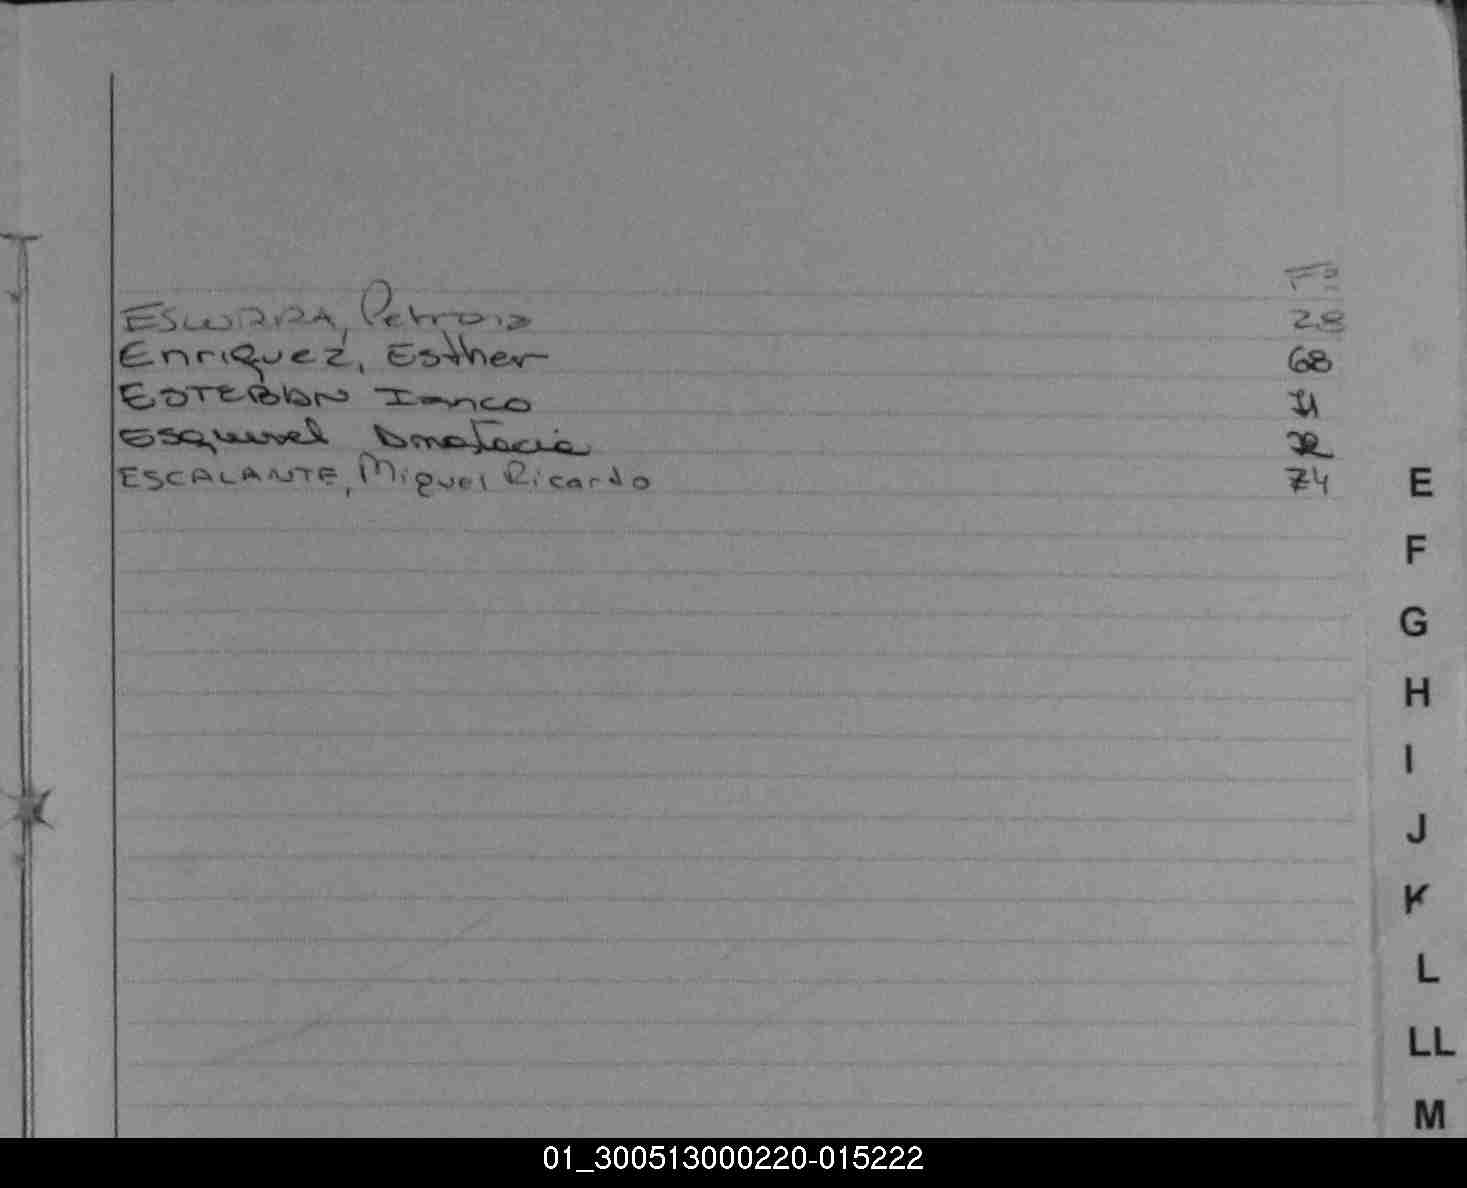 Fº
ESCURRA, Petrona 28
Enriquez, Esther 68
ESTEBAN 71
Esquivel 72
ESCALANTE, Miguel Ricardo 74
E
F
G
H
I
J
K
L
LL
M
01_300513000220-015222